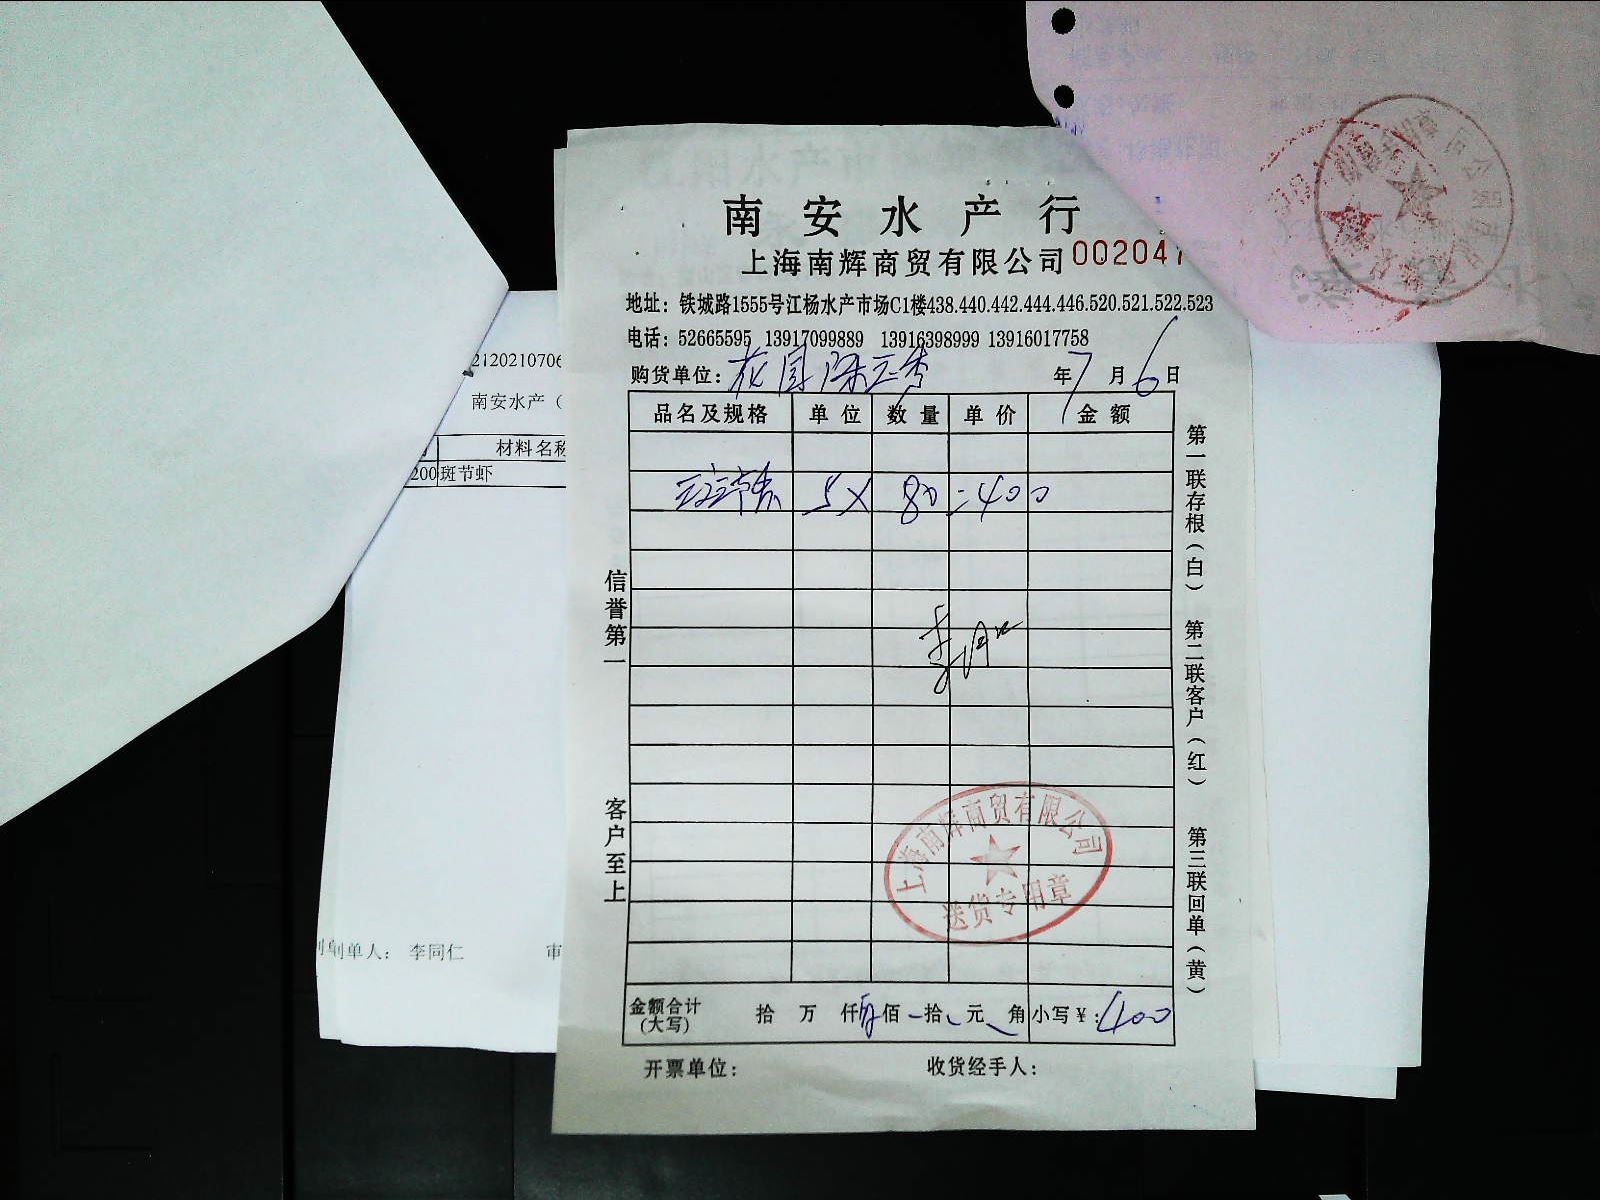 南安水产行
上海南辉商贸有限公司 002047
地址：铁城路1555号江杨水产市场C1楼438.440.442.444.446.520.521.522.523
电话：52665595 13917099889 13916398999 13916017758
购货单位：花园 年7月6日
品名及规格 单位 数量 单价 金额
斑节虾 5X 80=400
信誉第一
客户至上
第一联存根（白） 第二联客户（红） 第三联回单（黄）
上海南辉商贸有限公司
送货专用章
金额合计（大写） 拾 万 仟 佰 拾 元 角 小写¥：400
开票单位： 收货经手人：
2120210706
南安水产（
材料名称
200 斑节虾
制单人： 李同仁 审